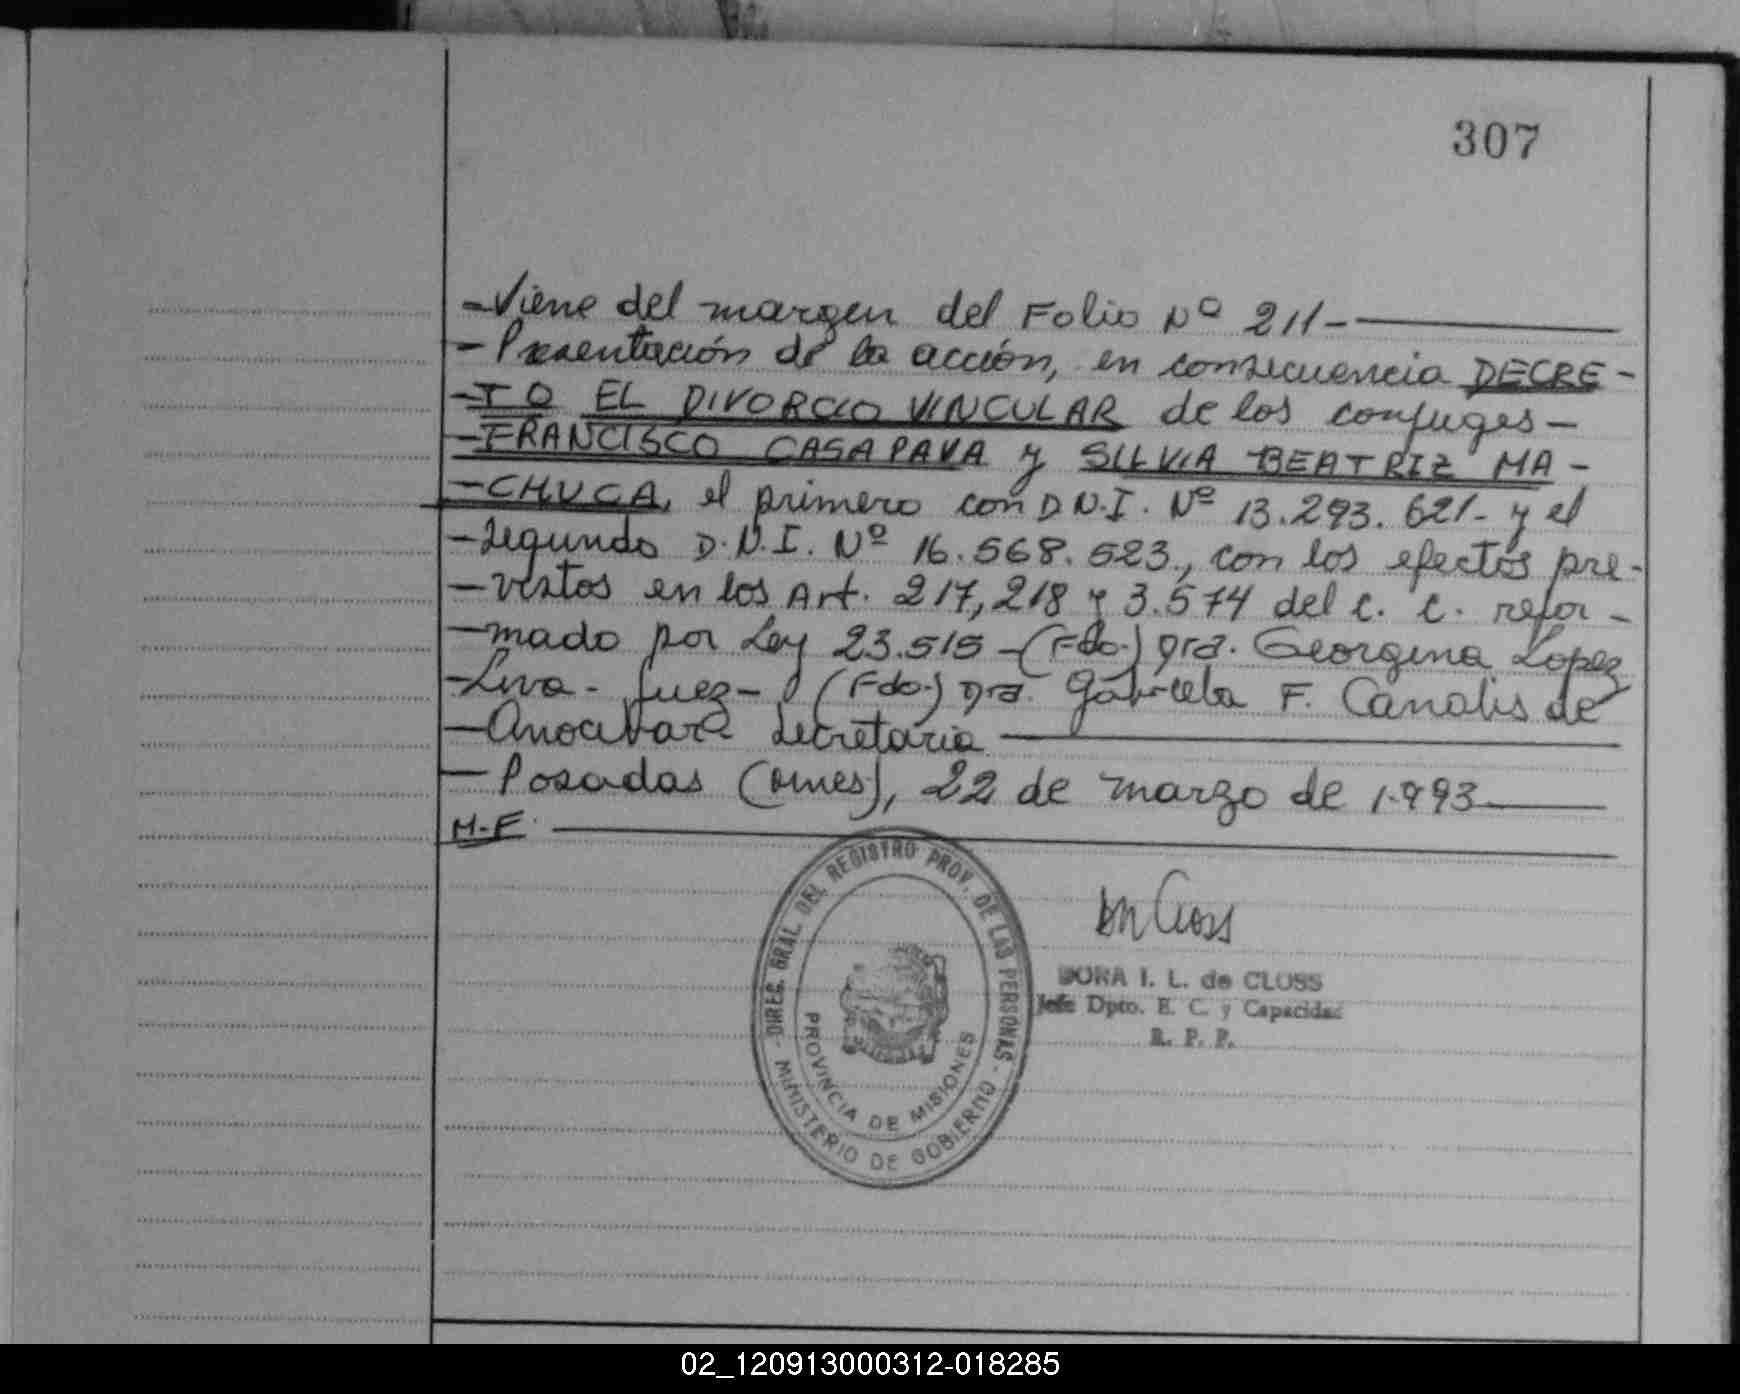 307
-Viene del margen del Folio Nº 211-
-Presentación de la acción, en consecuencia DECRE-
-TO EL DIVORCIO VINCULAR de los conjuges-
-FRANCISCO CASAPAVA y SILVIA BEATRIZ MA-
-CHUCA, el primero con D.N.I. Nº 13.293.621- y el
-segundo D.N.I. Nº 16.568.523., con los efectos pre-
-vistos en los Art. 217, 218 y 3.574 del C. C. refor-
-mado por Ley 23.515 -(Fdo.) Dra. Georgina Lopez
-Liva- Juez- (Fdo.) Dra. Gabriela F. Canalis de
- Secretaria
-Posadas (Mnes), 22 de marzo de 1.993
M-F.
DIREC. GRAL. DEL REGISTRO PROV. DE LAS PERSONAS -
MINISTERIO DE GOBIERNO -
PROVINCIA DE MISIONES
DORA I. L. de CLOSS
Jefe Dpto. E. C. y Capacidad
R. P. P.
02_120913000312-018285